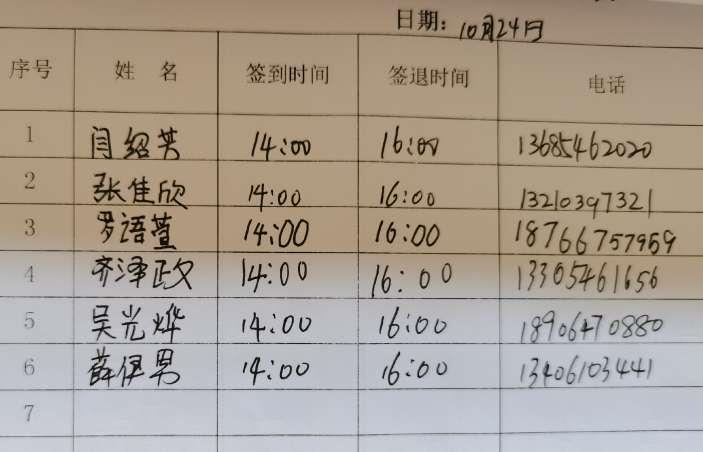 日期: 10月24日
序号 姓 名 签到时间 签退时间 电话
1 闫绍英 14:00 16:00 13685462020
2 张佳欣 14:00 16:00 13210397321
3 罗语萱 14:00 16:00 18766757959
4 齐泽政 14:00 16:00 13305461656
5 吴光烨 14:00 16:00 18906470880
6 薛伊男 14:00 16:00 13406103441
7